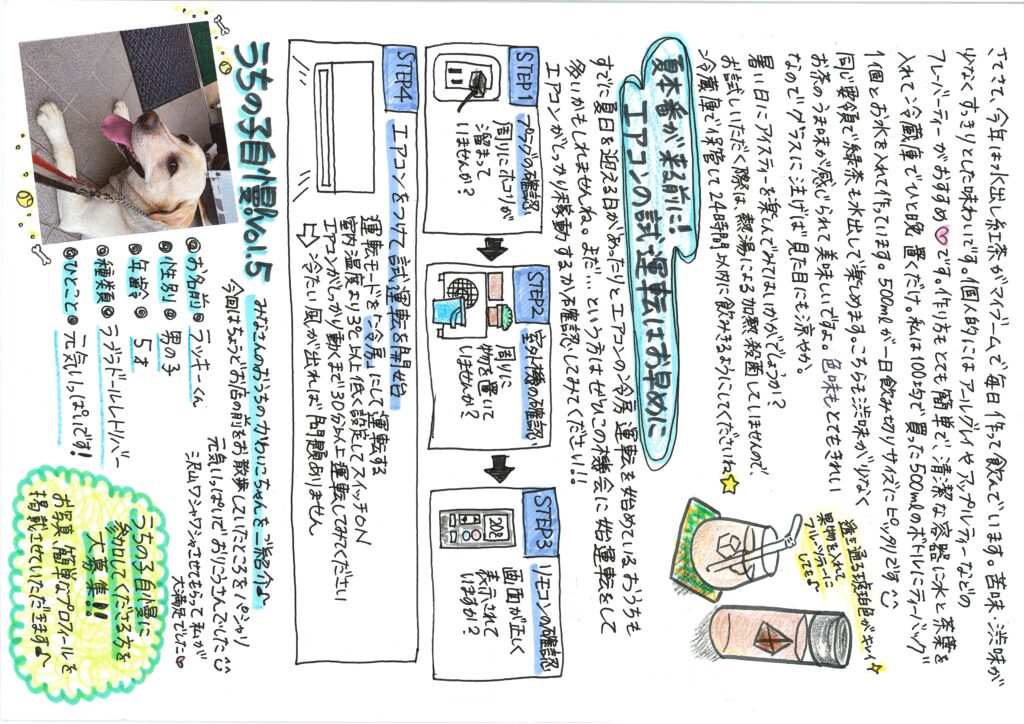 さてさて、今年は水出し紅茶がマイブームで毎日作って飲んでいます。苦味・渋味が
少なくすっきりとした味わいです。個人的にはアールグレイやアップルティーなどの
フレーバーティーがおすすめ♡です。作り方もとても簡単で、清潔な容器に水と茶葉を
入れて冷蔵庫でひと晩置くだけ。私は100均で買った500mlのボトルにティーバッグ
個とお水を入れて作っています。500mlが一日飲み切りサイズにピッタリです
同じ要領で緑茶も水出しで楽しめます。こちらも渋味が少なく
お茶のうま味が感じられて美味しいですよ。色味もとてもきれい
なのでグラスに注げば見た目にも涼やか。
暑い日にアイスティーを楽しんでみてはいかがでしょうか?
お試しいただく際は、熱湯による加熱殺菌していませんので、
冷蔵庫で保管して24時間以内に飲みきるようにしてくださいね☆
透き通る琥珀色がキレイ☆
果物を入れて
フルーツティーに
しても♪
夏本番が来る前に!!
エアコンの試運転はお早めに
すでに夏日を迎える日があったりとエアコンの冷房運転を始めているおうちも
多いかもしれませんね。まだ…という方はぜひこの機会に始運転をして
エアコンがしっかり稼動するか確認してみてください!!
STEP1
プラグの確認
周りにホコリが
溜まって
いませんか?
STEP2
室外機の確認
周りに
物を置いて
いませんか?
STEP3
リモコンの確認
画面が正しく
表示されて
いますか?
20℃
STEP4
エアコンをつけて試運転を開始
運転モードを「冷房」にして運転する
室内温度より3℃以上低く設定してスイッチON
エアコンがしっかり動くまで30分以上運転してみてください
⇨冷たい風が出れば問題ありません
うちの子自慢Vol.5
みなさんのおうちのかわいこちゃんを、ご紹介♪
今回はちょうどお店の前をお散歩していたところをパシャリ
元気いっぱいでおりこうさんでした
沢山ワシャワシャさせてもらって私が
大満足でした♥
◎お名前◎ラッキーくん
◎性別◎男の子
◎年齢◎5才
◎種類◎ラブラドールレトリバー
◎ひとこと◎元気いっぱいです!
うちの子自慢に
参加してくださる方を
大募集!!
お写真・簡単なプロフィールを
掲載させていただきます♪